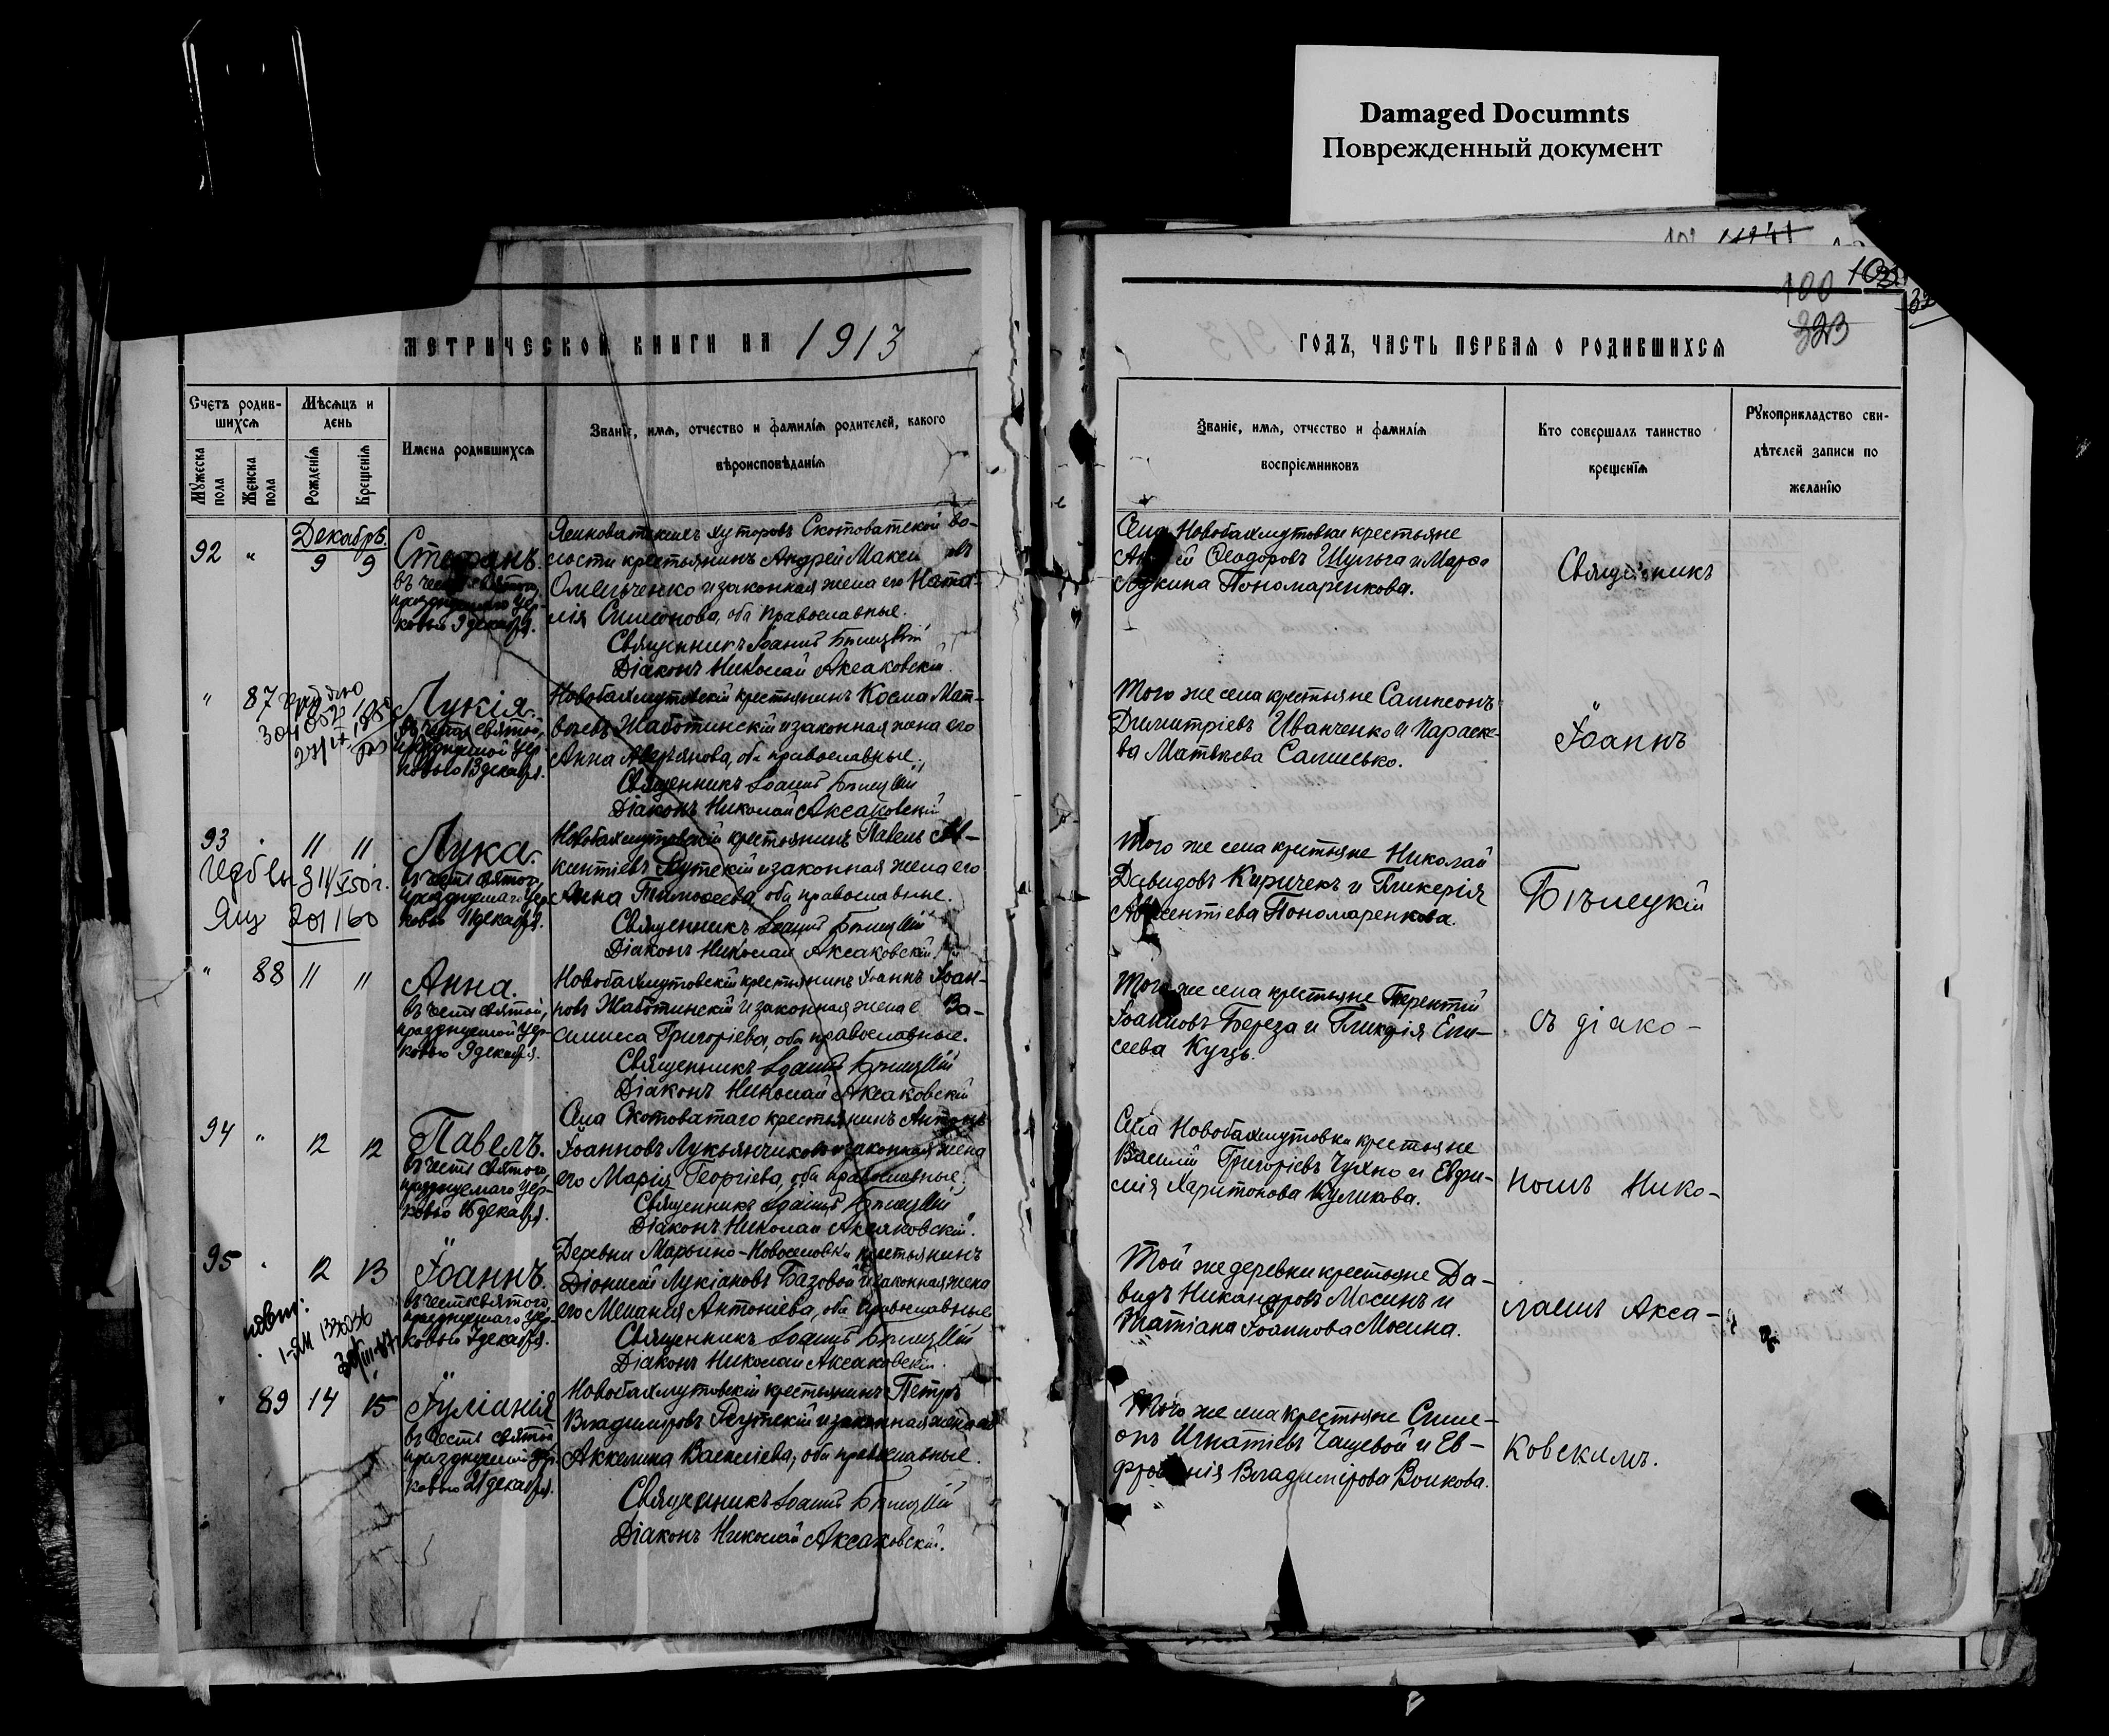 Damaged Documnts
Поврежденный документ
100
323
МЕТРИЧЕСКОЙ КНИГИ НА 1913
ГОДЪ, ЧАСТЬ ПЕРВАЯ О РОДИВШИХСЯ
Счетъ родив-
шихся
Мѣсяцъ и
день
Мужеска
пола
Женска
пола
Рожденія
Крещенія
Имена родившихся
Званіе, имя, отчество и фамилія родителей, какого
вѣроисповѣданія
Званіе, имя, отчество и фамилія
воспріемниковъ
Кто совершалъ таинство
крещенія
Рукоприкладство сви-
дѣтелей записи по
желанію
Декабрь.
92 " 9 9
Стефанъ.
въ честь святого,
празднуемаго цер-
ковью 9 декабря.
Ясиноватскихъ хуторовъ Скотоватской во-
лости крестьянинъ Андрей
Омельченко и законная жена его Ната-
лія Симеонова, оба православные.
Священникъ Іоаннъ Бѣлецкій
Діаконъ Николай Аксаковскій.
Села Новобахмутовки крестьяне
Ѳеодоровъ Шульга и Марѳа
Лукина Пономаренкова.
" 87
Лукія.
въ честь святой,
празднуемой цер-
ковью 13 декабря.
Новобахмутовскій крестьянинъ Косма Мат-
вѣевъ Жаботинскій и законная жена его
Анна Аверьянова, оба православные.
Священникъ Іоаннъ Бѣлецкій
Діаконъ Николай Аксаковскій
Того же села крестьяне Сампсонъ
Димитріевъ Иванченко и Параске-
ва Матвѣева Самисько.
93 " 11 11
Лука.
въ честь святого,
празднуемаго цер-
ковью 11 декабря.
Новобахмутовскій крестьянинъ Павелъ
и законная жена его
Анна Тимоѳеева, оба православные.
Священникъ Іоаннъ Бѣлецкій
Діаконъ Николай Аксаковскій
Того же села крестьяне Николай
Давидовъ Киричекъ и Гликерія
Пономаренкова.
" 88 11 11
Анна.
въ честь святой,
празднуемой цер-
ковью 9 декабря.
Новобахмутовскій крестьянинъ Іоаннъ Іоан-
новъ Жаботинскій и законная жена е Ва-
силиса Григоріева, оба православные.
Священникъ Іоаннъ Бѣлецкій
Діаконъ Николай Аксаковскій
Того же села крестьяне Терентій
Іоанновъ Береза и Гликерія Ели-
сеева Куць.
94 " 12 12
Павелъ.
въ честь святого,
празднуемаго цер-
ковью декабря.
Села Скотоватаго крестьянинъ Антонъ
Іоанновъ Лукьянчиковъ и законная жена
его Марія Георгіева, оба православные.
Священникъ Іоаннъ Бѣлецкій
Діаконъ Николай Аксаковскій.
Села Новобахмутовки крестьяне
Василій Григоріевъ Чухно и Евфи-
мія Харитонова Куликова.
95 " 12 13
Іоаннъ.
въ честь святого,
празднуемаго цер-
ковью декабря.
Деревни Марьино-Новоселовки крестьянинъ
Діонисій Лукіановъ Базовой и законная жена
его Меланія Антоніева, оба православные
Священникъ Іоаннъ Бѣлецкій
Діаконъ Николай Аксаковскій.
Той же деревни крестьяне Да-
видъ Никандровъ Мосинъ и
Татіана Іоаннова Мосина.
" 89 14 15
Іуліанія
въ честь святой
празднуемой цер-
ковью 21 декабря.
Новобахмутовскій крестьянинъ Петръ
Владимировъ Реутскій и законная жена его
Аккилина Василіева, оба православные.
Священникъ Іоаннъ Бѣлецкій
Діаконъ Николай Аксаковскій.
Того же села крестьяне Симе-
онъ Игнатіевъ Чащевой и Ев-
Владимірова Волкова.
Священникъ
Іоаннъ
Бѣлецкій
съ діако-
номъ Нико-
лаемъ Акса-
ковскимъ.